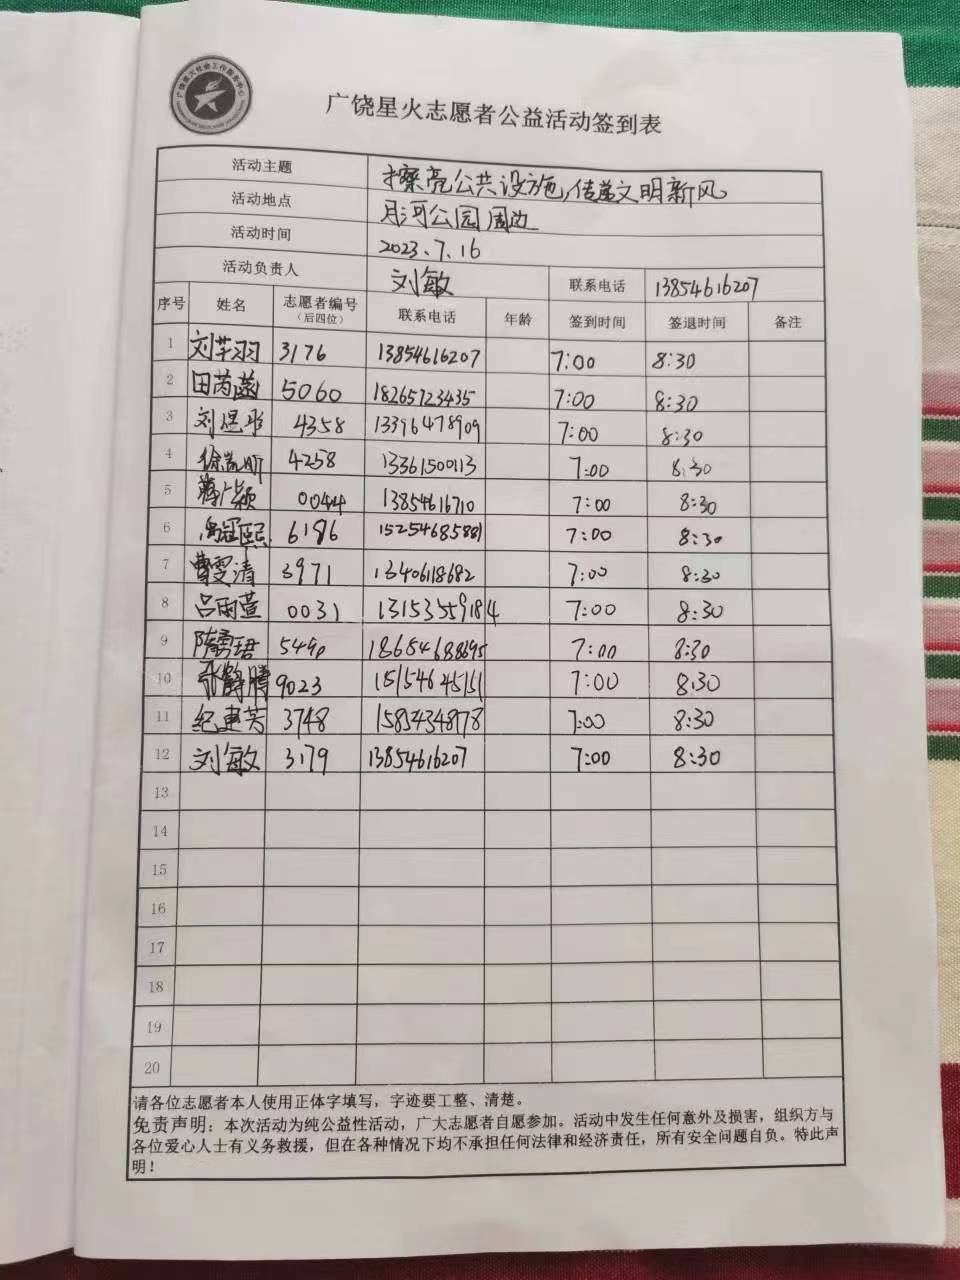 广饶星火社会工作服务中心
广饶星火志愿者公益活动签到表
活动主题 擦亮公共设施,传递文明新风
活动地点 月河公园周边
活动时间 2023.7.16
活动负责人 刘敏 联系电话 13854616207
序号 姓名 志愿者编号（后四位） 联系电话 年龄 签到时间 签退时间 备注
1 刘芊羽 3176 13854616207 7:00 8:30
2 田芮菡 5060 18265723435 7:00 8:30
3 刘煜彤 4358 13396478909 7:00 8:30
4 4258 13361500113 7:00 8:30
5 0044 13854616710 7:00 8:30
6 6186 15254685881 7:00 8:30
7 曹雯清 3971 13406118682 7:00 8:30
8 吕雨萱 0031 13153559184 7:00 8:30
9 5490 18654688695 7:00 8:30
10 9023 15154645151 7:00 8:30
11 纪建芳 3748 15854348778 7:00 8:30
12 刘敏 3179 13854616207 7:00 8:30
13
14
15
16
17
18
19
20
请各位志愿者本人使用正体字填写，字迹要工整、清楚。
免责声明：本次活动为纯公益性活动，广大志愿者自愿参加。活动中发生任何意外及损害，组织方与
各位爱心人士有义务救援，但在各种情况下均不承担任何法律和经济责任，所有安全问题自负。特此声
明！